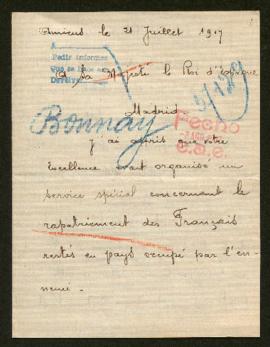 Amiens le 21 Juillet 1917
A
Pedir informes
Derôve
A Sa Majesté le Roi d'Espagne
5/129
Madrid
Bonnay
Fecho
J'ai appris que votre
Excellence avait organisé un
service spécial concernant le
rapatriement des Français
restés en pays occupé par l'en-
nemi.